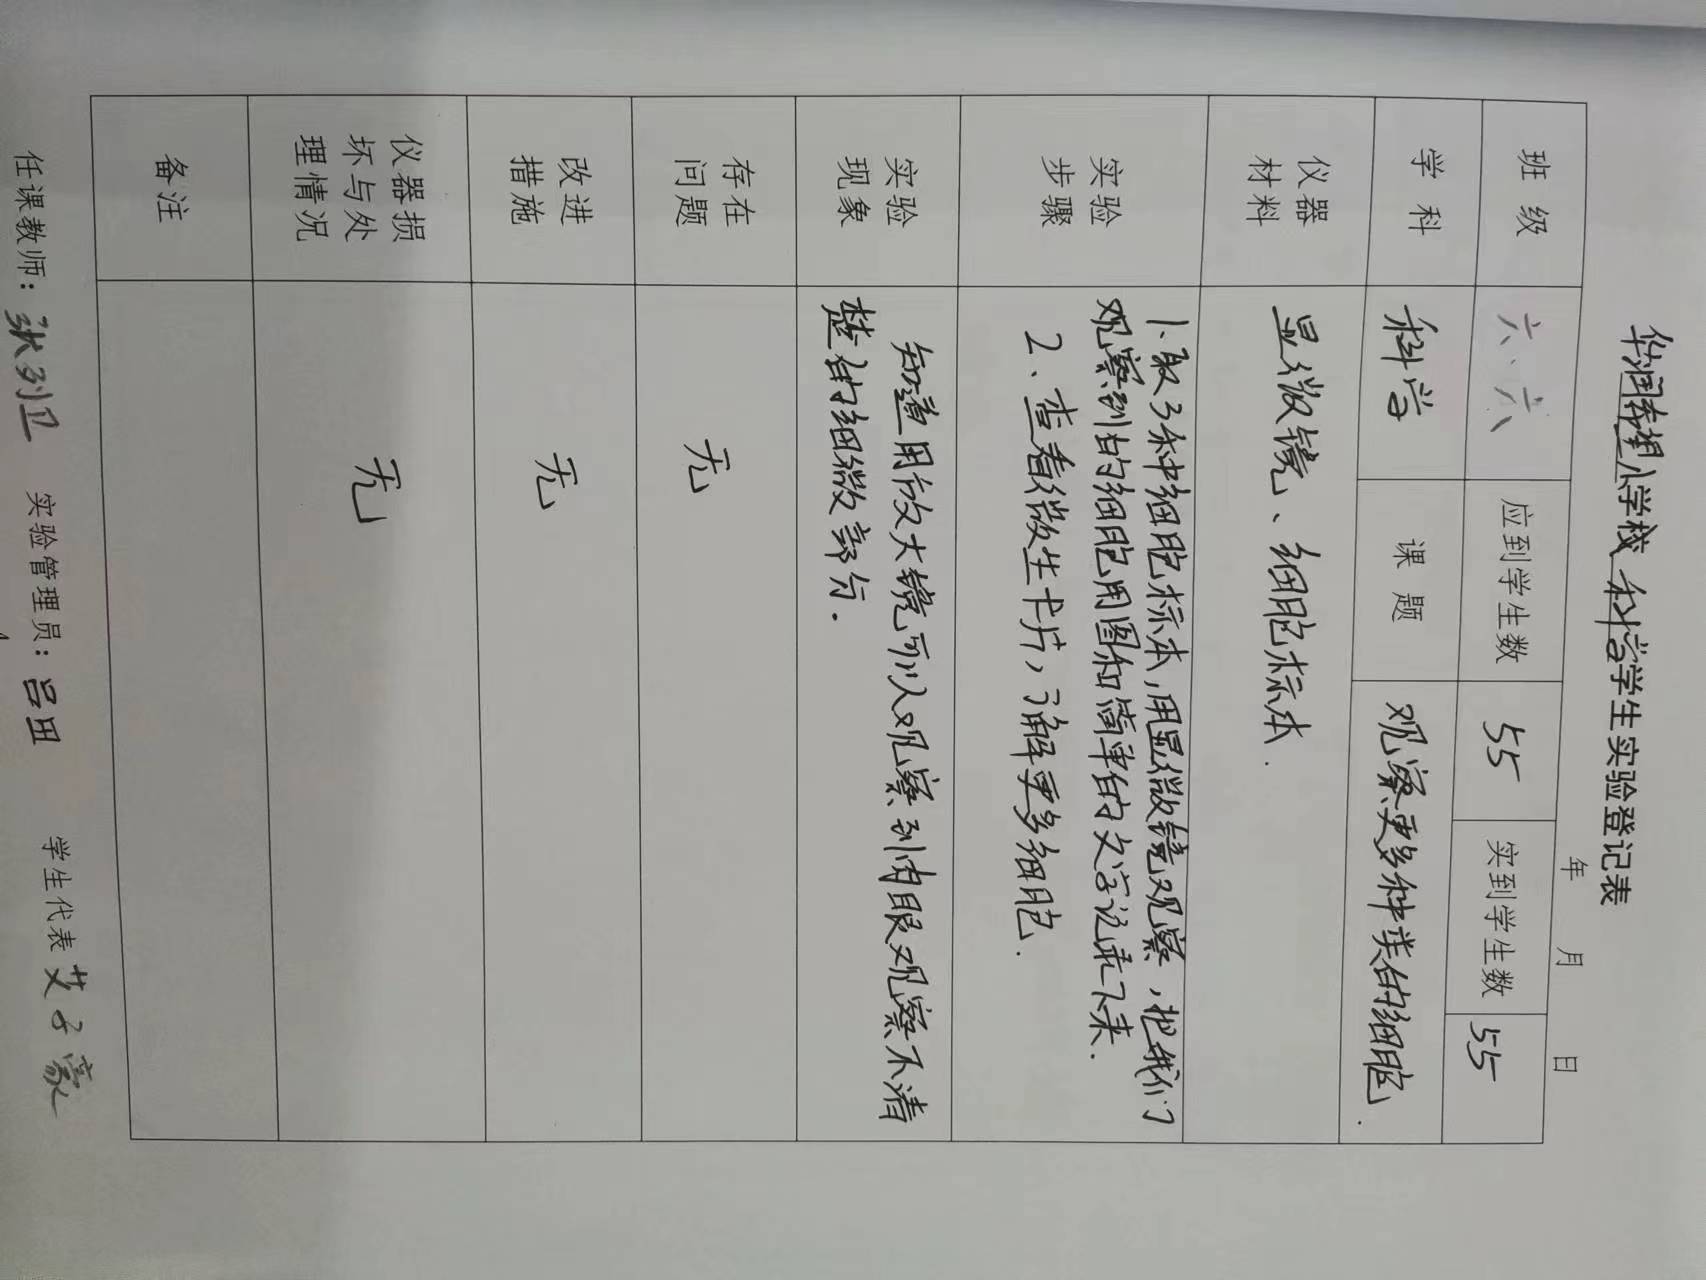 华润希望小学校 科学学生实验登记表
年 月 日
班级 六、六 应到学生数 55 实到学生数 55
学科 科学 课题 观察更多种类的细胞.
仪器
材料
显微镜、细胞标本.
实验
步骤
1、取3种细胞标本,用显微镜观察,把我们
观察到的细胞用图和简单的文字记录下来.
2、查看微生卡片,了解更多细胞.
实验
现象
知道用放大镜可以观察到肉眼观察不清
楚的细微部分.
存在
问题
无
改进
措施
无
仪器损
坏与处
理情况
无
备注
任课教师: 张列卫 实验管理员: 吕田 学生代表 艾子豪